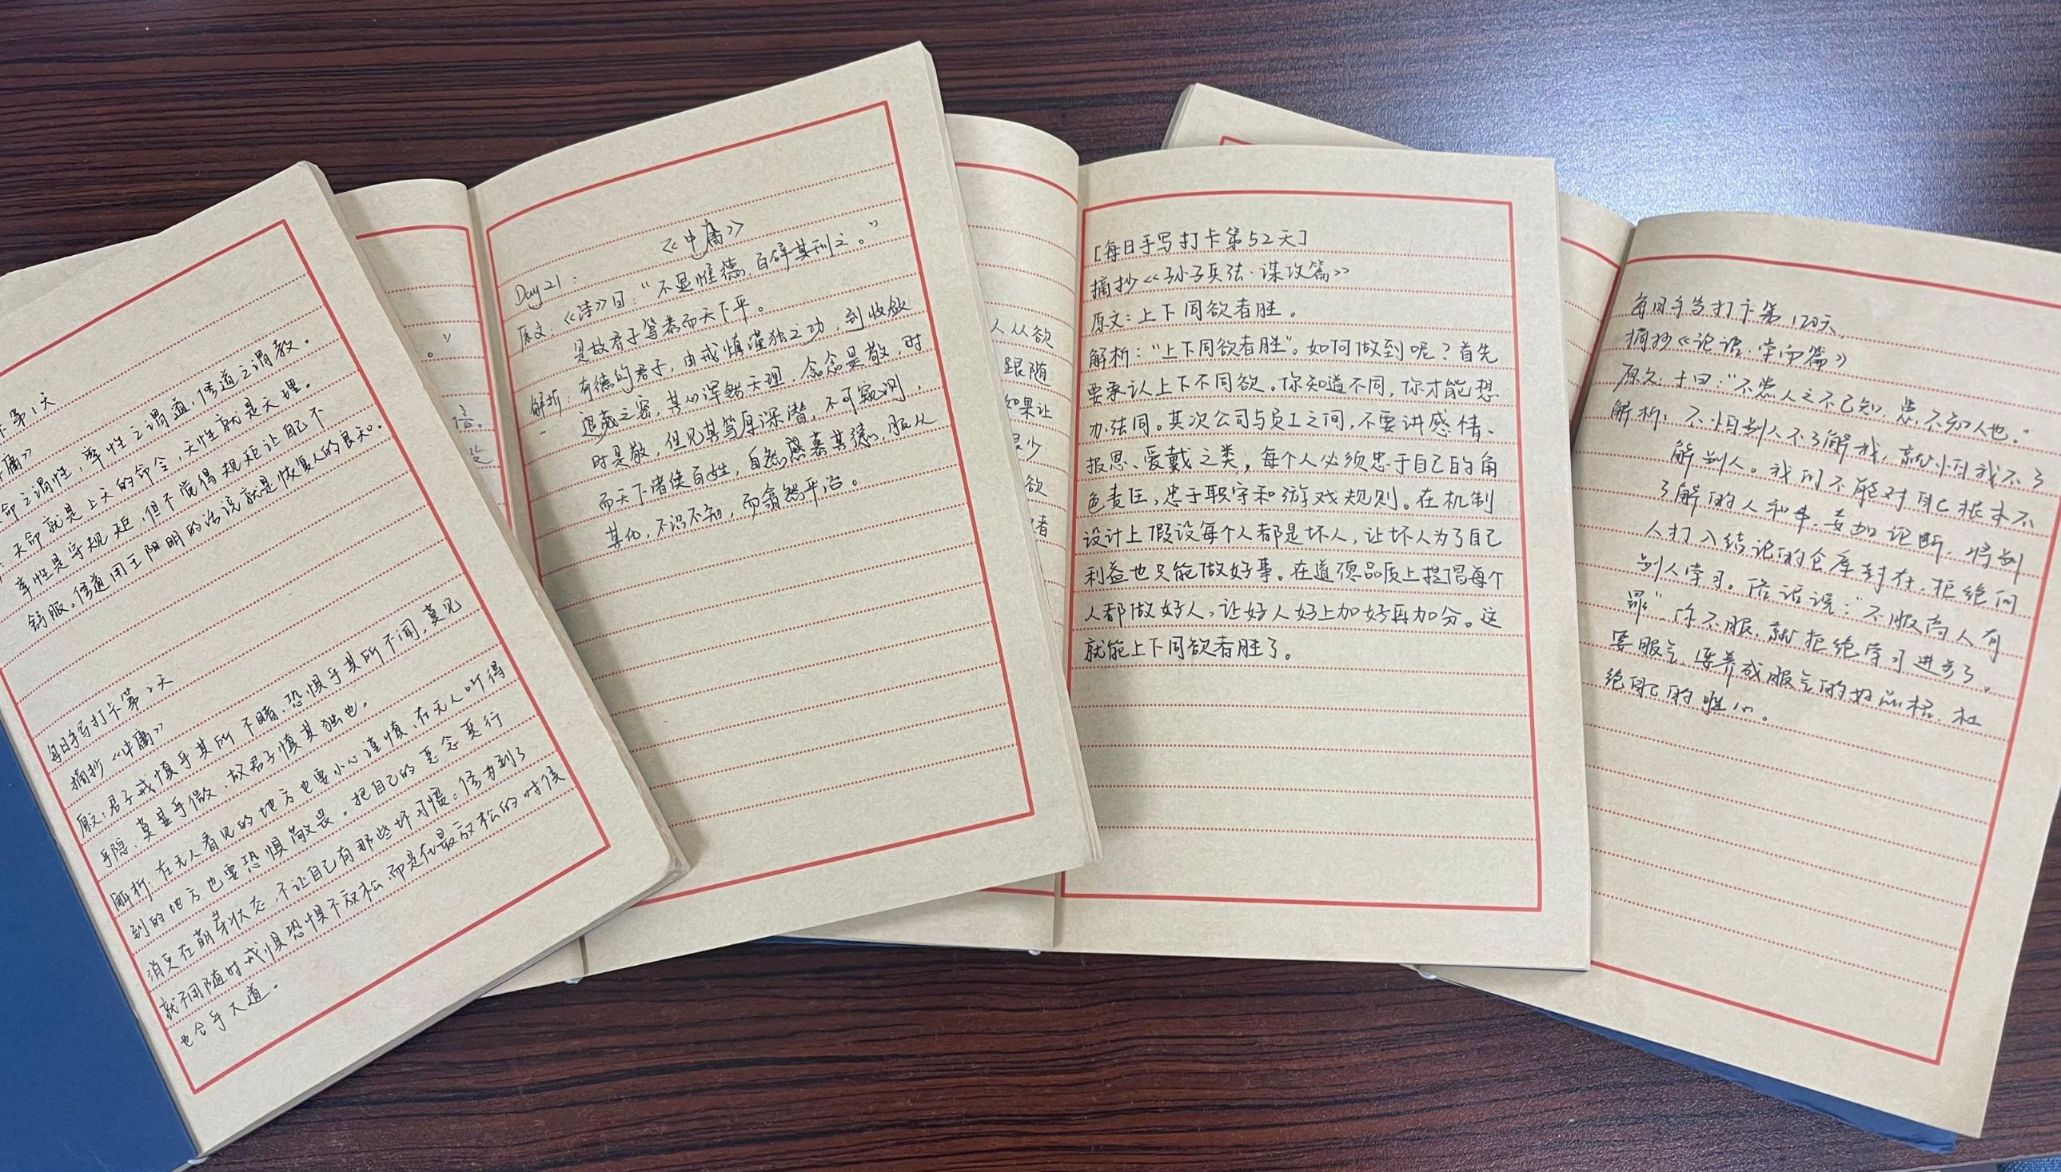 卡第1天
庸》
命之谓性，率性之谓道，修道之谓教。
天命就是上天的命令，天性就是天理。
率性是守规矩，但不觉得规矩让自己不
舒服。修道用王阳明的话说就是恢复人的良知。
每日手写打卡第2天
摘抄《中庸》
原文：君子戒慎乎其所不睹，恐惧乎其所不闻，莫见
乎隐，莫显乎微，故君子慎其独也。
解析：在无人看见的地方也要小心谨慎，在无人听得
到的地方也要恐惧敬畏。把自己的恶念恶行
消灭在萌芽状态，不让自己有那些坏习惯。修为到了
就不用随时戒惧恐惧不放松，而是在最放松的时候
也合乎大道。
。”
信。
《中庸》
Day21：
原文：《诗》曰：“不显惟德，百辟其刑之。”
是故君子笃恭而天下平。
解析：有德的君子，由戒慎谨独之功，到收敛
退藏之密，其心浑然天理，念念是敬，时
时是敬，但见其笃厚深潜，不可窥测，
而天下诸侯百姓，自然感慕其德，服从
其化，不识不知，而翕然平治。
人从欲
跟随
如果让
很少
欲
者
[每日手写打卡第52天]
摘抄《孙子兵法·谋攻篇》
原文：上下同欲者胜。
解析：“上下同欲者胜”。如何做到呢？首先
要承认上下不同欲。你知道不同，你才能想
办法同。其次公司与员工之间，不要讲感情、
报恩、爱戴之类，每个人必须忠于自己的角
色责任，忠于职守和游戏规则。在机制
设计上假设每个人都是坏人，让坏人为了自己
利益也只能做好事。在道德品质上提倡每个
人都做好人，让好人好上加好再加分。这
就能上下同欲者胜了。
每日手写打卡第120天
摘抄《论语·学而篇》
原文：子曰：“不患人之不己知，患不知人也。”
解析：不怕别人不了解我，就怕我不了
解别人。我们不能对自己根本不
了解的人和事，妄加论断，将别
人打入结论的仓库封存，拒绝向
别人学习。俗话说：“不服高人有
罪”你不服，就拒绝学习进步了。
要服气，培养成服气的好品格，杜
绝自己的胜心。